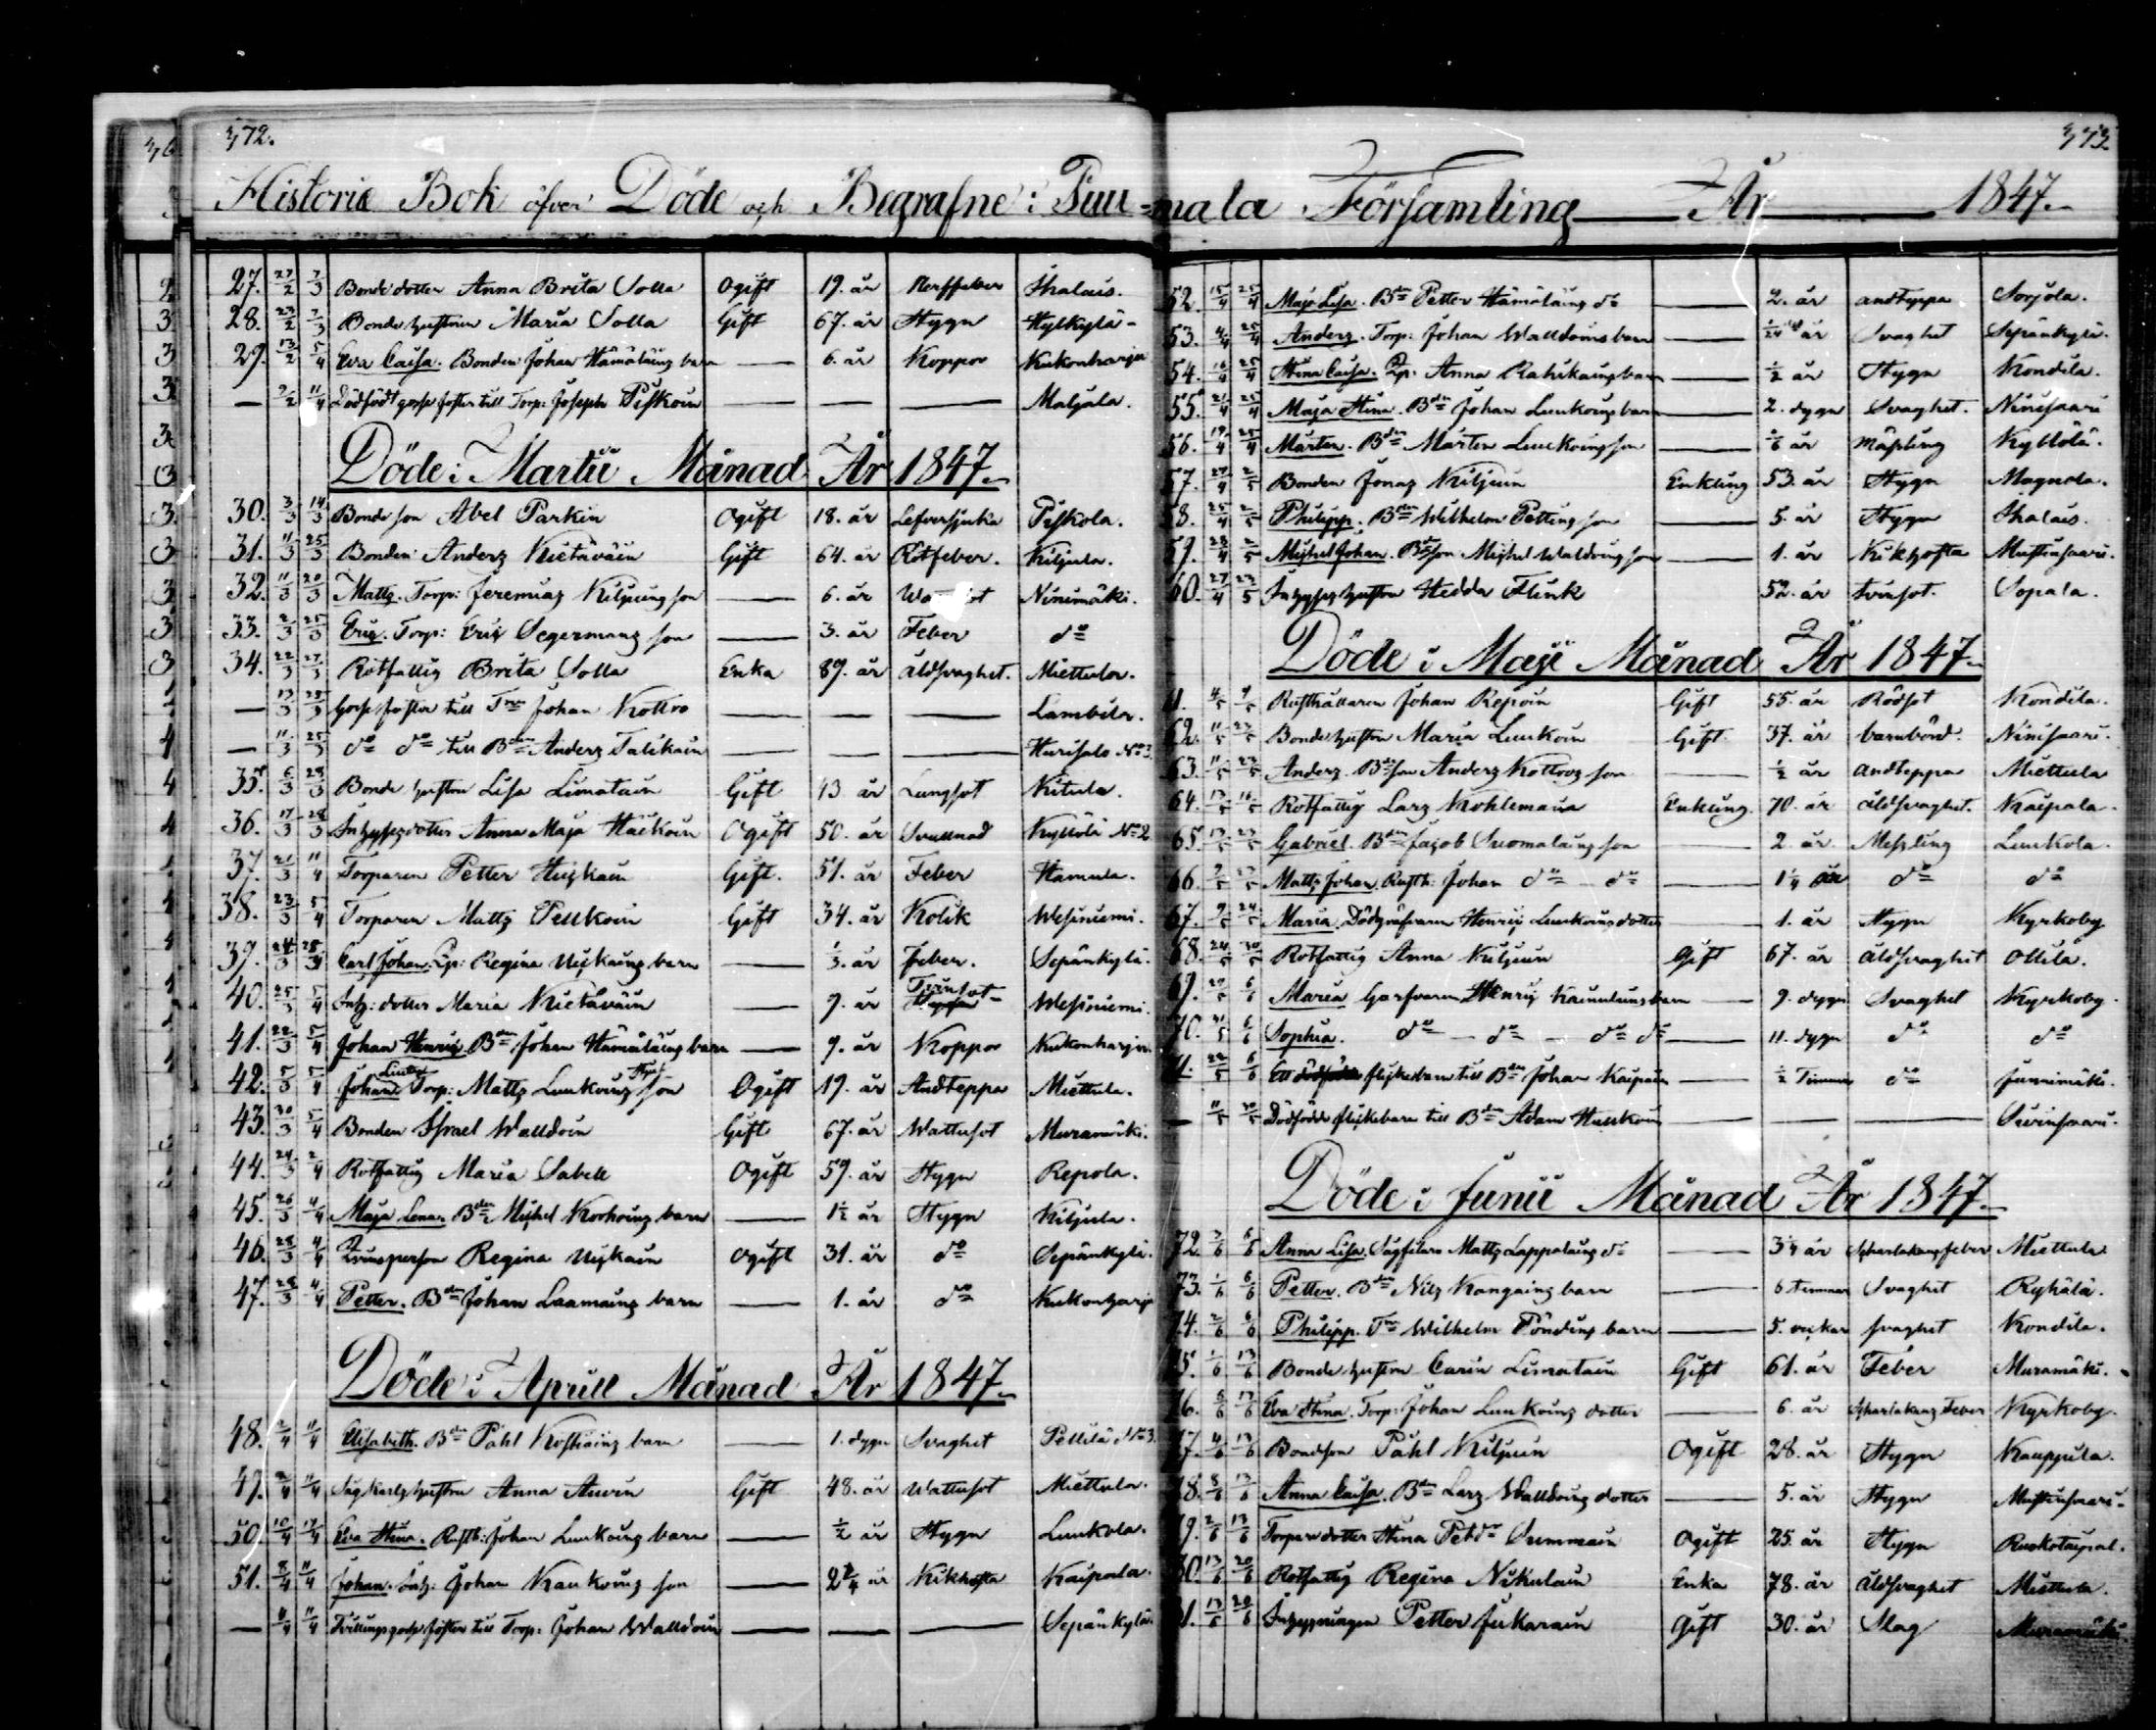 372.
Historie Bok öfver Döde och Begrafne i Puu-
27. 27/2 7/3 Bonde dotter Anna Brita Solla Ogift 19. år Nerffeber Ihalais.
28. 23/2 7/3 Bonde hustrun Maria Solla Gift 67. år Stygn Hylkylä-
29. 13/2 5/4 Eva Caisa. Bonden Johan Hämäläins barn — 6. år Koppor Kukonharju
— 9/2 11/4 Dödfödt gosse foster till Torp: Joseph Piskoin — — — Maljala.
Döde i Martii Månad År 1847.
30. 3/3 14/3 Bonde son Abel Parkin Ogift 18. år Lefversjuka Piskola.
31. 11/3 25/3 Bonden Anders Kietäväin Gift 64. år Rötfeber. Kiljula.
32. 11/3 20/3 Matts. Torp: Jeremias Kiljuins son — 6. år Ninimäki.
33. 2/3 25/3 Eric. Torp: Eric Segermans son — 3. år Feber d:o
34. 22/3 27/3 Rotfattig Brita Solla Enka 89. år åldsvaghet. Miettula.
— 13/3 25/3 Gosse foster till T:n Johan Kottro — — — Lambila.
— 11/3 25/3 d:o d:o till B:den Anders Talikain — — — Hurisalo N:o 3
35. 6/3 28/3 Bonde hustrun Lisa Limatain Gift 43 år Lungsot Kitula.
36. 17/3 28/3 Inhyses dotter Anna Maja Häikoin Ogift 50. år Svullnad Kyllölä N:o 2
37. 21/3 11/4 Torparen Petter Huskain Gift. 51. år Feber Hamula.
38. 23/3 5/4 Torparen Matts Pellkoin Gift 34. år Kolik Wesiniemi.
39. 24/3 28/3 Carl Johan. Qp: Regina Uiskains barn — 1/3. år Feber. Sepänkylä.
40. 25/3 5/4 Inh: dotter Maria Kietäväin — 9. år Tvinsot- Wesiniemi.
41. 22/3 5/4 Johan Henric B:den Johan Hämäläins barn — 9. år Koppor Kukonharju.
42. 5/3 5/4 Johan Torp: Matts Luukoins son Ogift 19. år Andteppa Miettula.
43. 30/3 5/4 Bonden Israel Walldoin Gift 67. år Wattusot Muramäki.
44. 24/3 2/4 Rotfattig Maria Sabell Ogift 59. år Stygn Repola.
45. 26/3 4/4 Maja Lena. B:den Michel Korhoins barn — 1 1/2 år Stygn Kiljula.
46. 28/3 4/4 Qvinsperson Regina Uiskain Ogift 31. år d:o Sepänkylä.
47. 28/3 4/4 Petter. B:den Johan Laamains barn — 1. år d:o Kukonharju
Döde i Aprill Månad År 1847.
48. 2/4 11/4 Elisabeth. B:den Påhl Koskiains barn — 1. dygn Svaghet Pellilä N:o 3.
49. 2/4 11/4 Sågkarls hustrun Anna Auvin Gift 48. år Wattusot Miettula.
50. 10/4 17/4 Eva Stina. Rusth: Johan Luukoins barn — 1/2 år Stygn Luukola.
51. 8/4 11/4 Johan. Inh: Johan Kaukoins son — år Kikhosta Kaipala.
— 11/4 Tvillings gosse foster till Torp: Johan Walldoin — — — Sepänkylä.
373.
mala Församling År 1847.
52. 15/4 25/4 Maja Lisa. B:den Petter Hämäläins d:r — 2. år andtyppa Sorjola.
53. 4/4 25/4 Anders. Torp: Johan Walldoins barn — 1/24 år Svaghet Sepänkylä.
54. 16/4 25/4 Stina Caisa. Qp: Anna Rahikains barn — 1/2 år Stygn Kondila.
55. 21/4 25/4 Maja Stina. B:den Johan Luukoins barn — 2. dygn Svaghet. Ninisaari
56. 19/4 25/4 Mårten. B:den Mårten Luukoins son — år Mässling Kyllölä.
57. 24/4 2/5 Bonden Jonas Kiljuin Enkling 53. år Stygn Magnola.
58. 25/4 2/5 Philipp. B:den Wilhelm Pettins son — 5. år Stygn Ihalais.
59. 28/4 2/5 Michel Johan. B:son Michel Waldoins son — 1. år Kikhosta Mustinsaari.
60. 27/4 23/5 Inhyses hustru Hedda Flink 52. år tvinsot. Sopala.
Döde i Maji Månad År 1847.
61. 4/5 9/5 Rusthållaren Johan Repoin Gift 55. år Rödsot Kondila.
62. 11/5 23/5 Bonde hustrun Maria Luukoin Gift. 37. år barnbörd. Ninisaari.
63. 11/5 23/5 Anders. B:deson Anders Kottros son — 1/2 år Andteppa Miettula
64. 13/5 16/5 Rotfattig Lars Kohlemain Enkling. 70. år åldsvaghet. Kaipala.
65. 13/5 23/5 Gabriel. B:den Jacob Suomalains son — 2. år Messling Luukola.
66. 9/5 23/5 Matts Johan. Rusth: Johan d:o d:o — 1 1/4 år d:o d:o
67. 9/5 24/5 Maria. Dödgräfvaren Henric Luukoins dotter 1. år Stygn Kyrkoby
68. 24/5 30/5 Rotfattig Anna Kiljuin Gift 67. år åldsvaghet Ollila.
69. 27/5 6/6 Maria Garfvaren Henric Kaimulains barn — 9. dygn Svaghet Kyrkoby.
70. 31/5 6/6 Sophia. d:o — d:o — d:o d:o — 11. dygn d:o d:o
71. 22/5 6/6 Ett flickebarn till B:den Johan Kaipain — 1/2 Timme d:o Junnimäki.
— 11/5 30/5 Dödfödde flickebarn till B:den Adam Hulkkoin — — — Suurinsaari.
Döde i Junii Månad År 1847.
72. 3/6 6/6 Anna Lisa. Sågfilare Matts Lappalains d:r — 3 1/4 år Scharlakansfeber Miettula
73. 1/6 6/6 Petter. B:den Nils Kangains barn — 6 timmar Svaghet Ryhälä.
74. 2/6 6/6 Philipp. T:n Wilhelm Pöndins barn — 5. veckar svaghet Kondila.
75. 1/6 13/6 Bonde hustrun Carin Limatain Gift 61. år Feber Muramäki.
76. 6/6 13/6 Eva Stina. Torp: Johan Luukoins dotter — 6. år Scharlakans Feber Kyrkoby.
77. 4/6 13/6 Bondeson Påhl Kiljuin Ogift 28. år Stygn Kauppila.
78. 8/6 13/6 Anna Caisa. B:den Lars Walldoins dotter — 5. år Stygn Mustinsaari.
79. 2/6 13/6 Torpare dotter Stina Pet:dr Summain Ogift 25. år Stygn Ruokotaipal.
80. 13/6 20/6 Rotfattig Regina Nikulain Enka 78. år åldsvaghet Miettula.
81. 13/6 20/6 Inhysningen Petter Jukarain Gift 30. år Slag Muramäki.